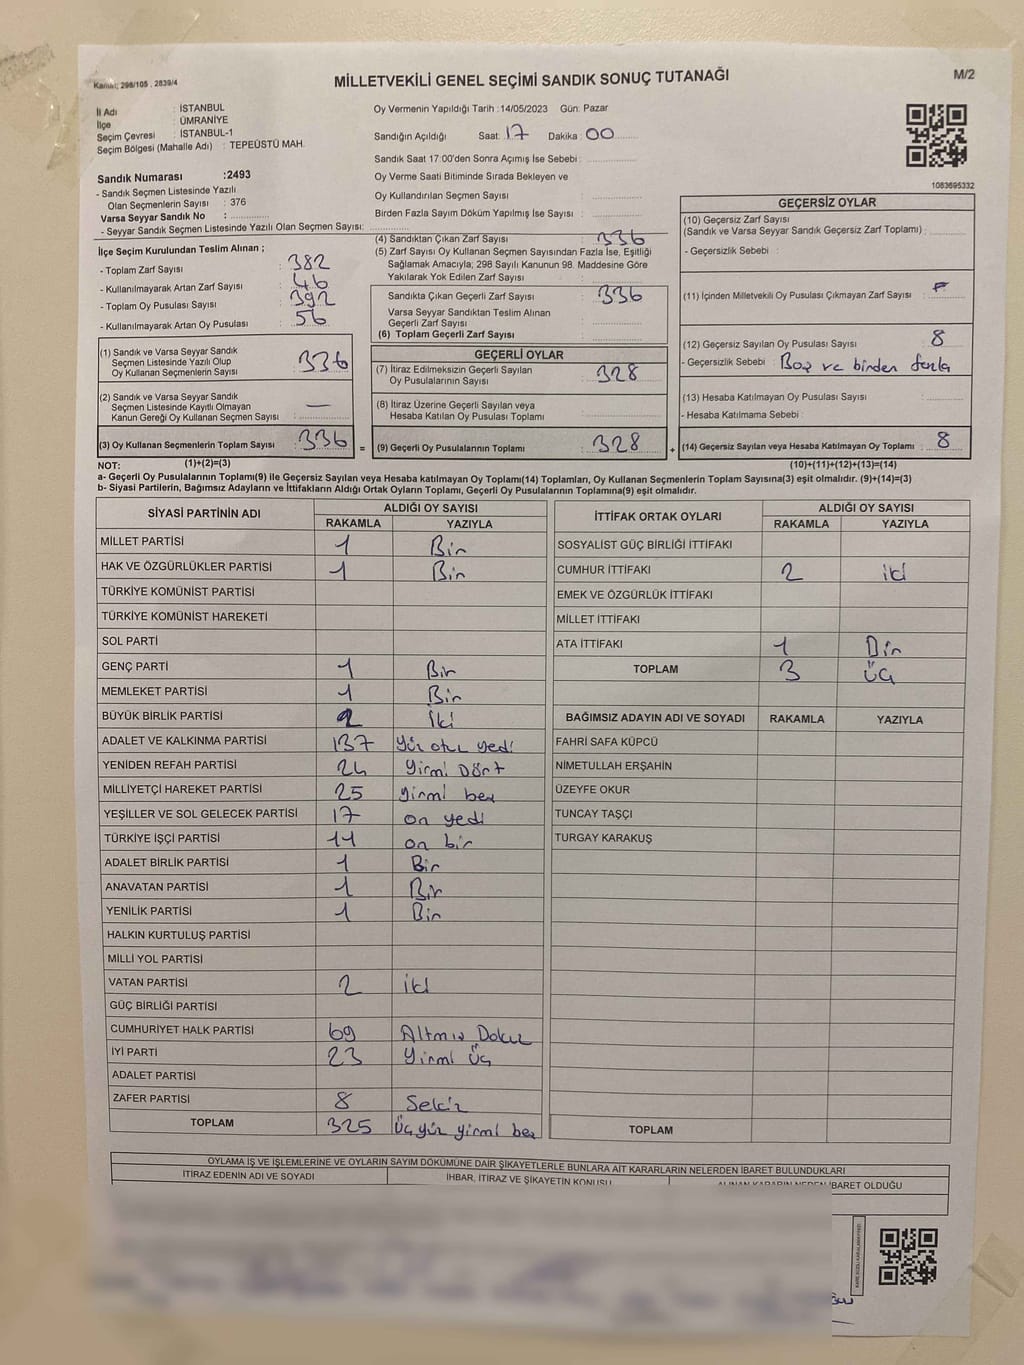 Kanun; 298/105 , 2839/4
MİLLETVEKİLİ GENEL SEÇİMİ SANDIK SONUÇ TUTANAĞI
M/2
İl Adı : İSTANBUL
İlçe : ÜMRANİYE
Seçim Çevresi : İSTANBUL-1
Seçim Bölgesi (Mahalle Adı) : TEPEÜSTÜ MAH.
Sandık Numarası :2493
- Sandık Seçmen Listesinde Yazılı
Olan Seçmenlerin Sayısı : 376
Varsa Seyyar Sandık No :
- Seyyar Sandık Seçmen Listesinde Yazılı Olan Seçmen Sayısı:
Oy Vermenin Yapıldığı Tarih :14/05/2023 Gün: Pazar
Sandığın Açıldığı Saat: 17 Dakika: 00
Sandık Saat 17:00'den Sonra Açımış İse Sebebi :
Oy Verme Saati Bitiminde Sırada Bekleyen ve
Oy Kullandırılan Seçmen Sayısı :
Birden Fazla Sayım Döküm Yapılmış İse Sayısı :
1083695332
İlçe Seçim Kurulundan Teslim Alınan ;
- Toplam Zarf Sayısı : 382
- Kullanılmayarak Artan Zarf Sayısı : 46
- Toplam Oy Pusulası Sayısı : 392
- Kullanılmayarak Artan Oy Pusulası : 56
(1) Sandık ve Varsa Seyyar Sandık
Seçmen Listesinde Yazılı Olup
Oy Kullanan Seçmenlerin Sayısı : 336
(2) Sandık ve Varsa Seyyar Sandık
Seçmen Listesinde Kayıtlı Olmayan
Kanun Gereği Oy Kullanan Seçmen Sayısı : —
(3) Oy Kullanan Seçmenlerin Toplam Sayısı : 336
=
(4) Sandıktan Çıkan Zarf Sayısı : 336
(5) Zarf Sayısı Oy Kullanan Seçmen Sayısından Fazla İse, Eşitliği
Sağlamak Amacıyla; 298 Sayılı Kanunun 98. Maddesine Göre
Yakılarak Yok Edilen Zarf Sayısı :
Sandıkta Çıkan Geçerli Zarf Sayısı : 336
Varsa Seyyar Sandıktan Teslim Alınan
Geçerli Zarf Sayısı :
(6) Toplam Geçerli Zarf Sayısı :
GEÇERLİ OYLAR
(7) İtiraz Edilmeksizin Geçerli Sayılan
Oy Pusulalarının Sayısı : 328
(8) İtiraz Üzerine Geçerli Sayılan veya
Hesaba Katılan Oy Pusulası Toplamı :
(9) Geçerli Oy Pusulalarının Toplamı : 328
+
GEÇERSİZ OYLAR
(10) Geçersiz Zarf Sayısı
(Sandık ve Varsa Seyyar Sandık Geçersiz Zarf Toplamı) :
- Geçersizlik Sebebi :
(11) İçinden Milletvekili Oy Pusulası Çıkmayan Zarf Sayısı :
(12) Geçersiz Sayılan Oy Pusulası Sayısı : 8
- Geçersizlik Sebebi : Boş ve birden fazla
(13) Hesaba Katılmayan Oy Pusulası Sayısı :
- Hesaba Katılmama Sebebi :
(14) Geçersiz Sayılan veya Hesaba Katılmayan Oy Toplamı : 8
NOT: (1)+(2)=(3) (10)+(11)+(12)+(13)=(14)
a- Geçerli Oy Pusulalarının Toplamı(9) ile Geçersiz Sayılan veya Hesaba katılmayan Oy Toplamı(14) Toplamları, Oy Kullanan Seçmenlerin Toplam Sayısına(3) eşit olmalıdır. (9)+(14)=(3)
b- Siyasi Partilerin, Bağımsız Adayların ve İttifakların Aldığı Ortak Oyların Toplamı, Geçerli Oy Pusulalarının Toplamına(9) eşit olmalıdır.
SİYASİ PARTİNİN ADI ALDIĞI OY SAYISI
RAKAMLA YAZIYLA
MİLLET PARTİSİ 1 Bir
HAK VE ÖZGÜRLÜKLER PARTİSİ 1 Bir
TÜRKİYE KOMÜNİST PARTİSİ
TÜRKİYE KOMÜNİST HAREKETİ
SOL PARTİ
GENÇ PARTİ 1 Bir
MEMLEKET PARTİSİ 1 Bir
BÜYÜK BİRLİK PARTİSİ 2 İki
ADALET VE KALKINMA PARTİSİ 137 Yüz otuz yedi
YENİDEN REFAH PARTİSİ 24 Yirmi Dört
MİLLİYETÇİ HAREKET PARTİSİ 25 Yirmi beş
YEŞİLLER VE SOL GELECEK PARTİSİ 17 on yedi
TÜRKİYE İŞÇİ PARTİSİ 11 on bir
ADALET BİRLİK PARTİSİ 1 Bir
ANAVATAN PARTİSİ 1 Bir
YENİLİK PARTİSİ 1 Bir
HALKIN KURTULUŞ PARTİSİ
MİLLİ YOL PARTİSİ
VATAN PARTİSİ 2 iki
GÜÇ BİRLİĞİ PARTİSİ
CUMHURİYET HALK PARTİSİ 69 Altmış Dokuz
İYİ PARTİ 23 Yirmi Üç
ADALET PARTİSİ
ZAFER PARTİSİ 8 Sekiz
TOPLAM 325 Üç yüz yirmi beş
İTTİFAK ORTAK OYLARI ALDIĞI OY SAYISI
RAKAMLA YAZIYLA
SOSYALİST GÜÇ BİRLİĞİ İTTİFAKI
CUMHUR İTTİFAKI 2 iki
EMEK VE ÖZGÜRLÜK İTTİFAKI
MİLLET İTTİFAKI
ATA İTTİFAKI 1 Bir
TOPLAM 3 Üç
BAĞIMSIZ ADAYIN ADI VE SOYADI RAKAMLA YAZIYLA
FAHRİ SAFA KÜPCÜ
NİMETULLAH ERŞAHİN
ÜZEYFE OKUR
TUNCAY TAŞÇI
TURGAY KARAKUŞ
TOPLAM
OYLAMA İŞ VE İŞLEMLERİNE VE OYLARIN SAYIM DÖKÜMÜNE DAİR ŞİKAYETLERLE BUNLARA AİT KARARLARIN NELERDEN İBARET BULUNDUKLARI
İTİRAZ EDENİN ADI VE SOYADI İHBAR, İTİRAZ VE ŞİKAYETİN KONUSU ALINAN KARARIN NEDEN İBARET OLDUĞU